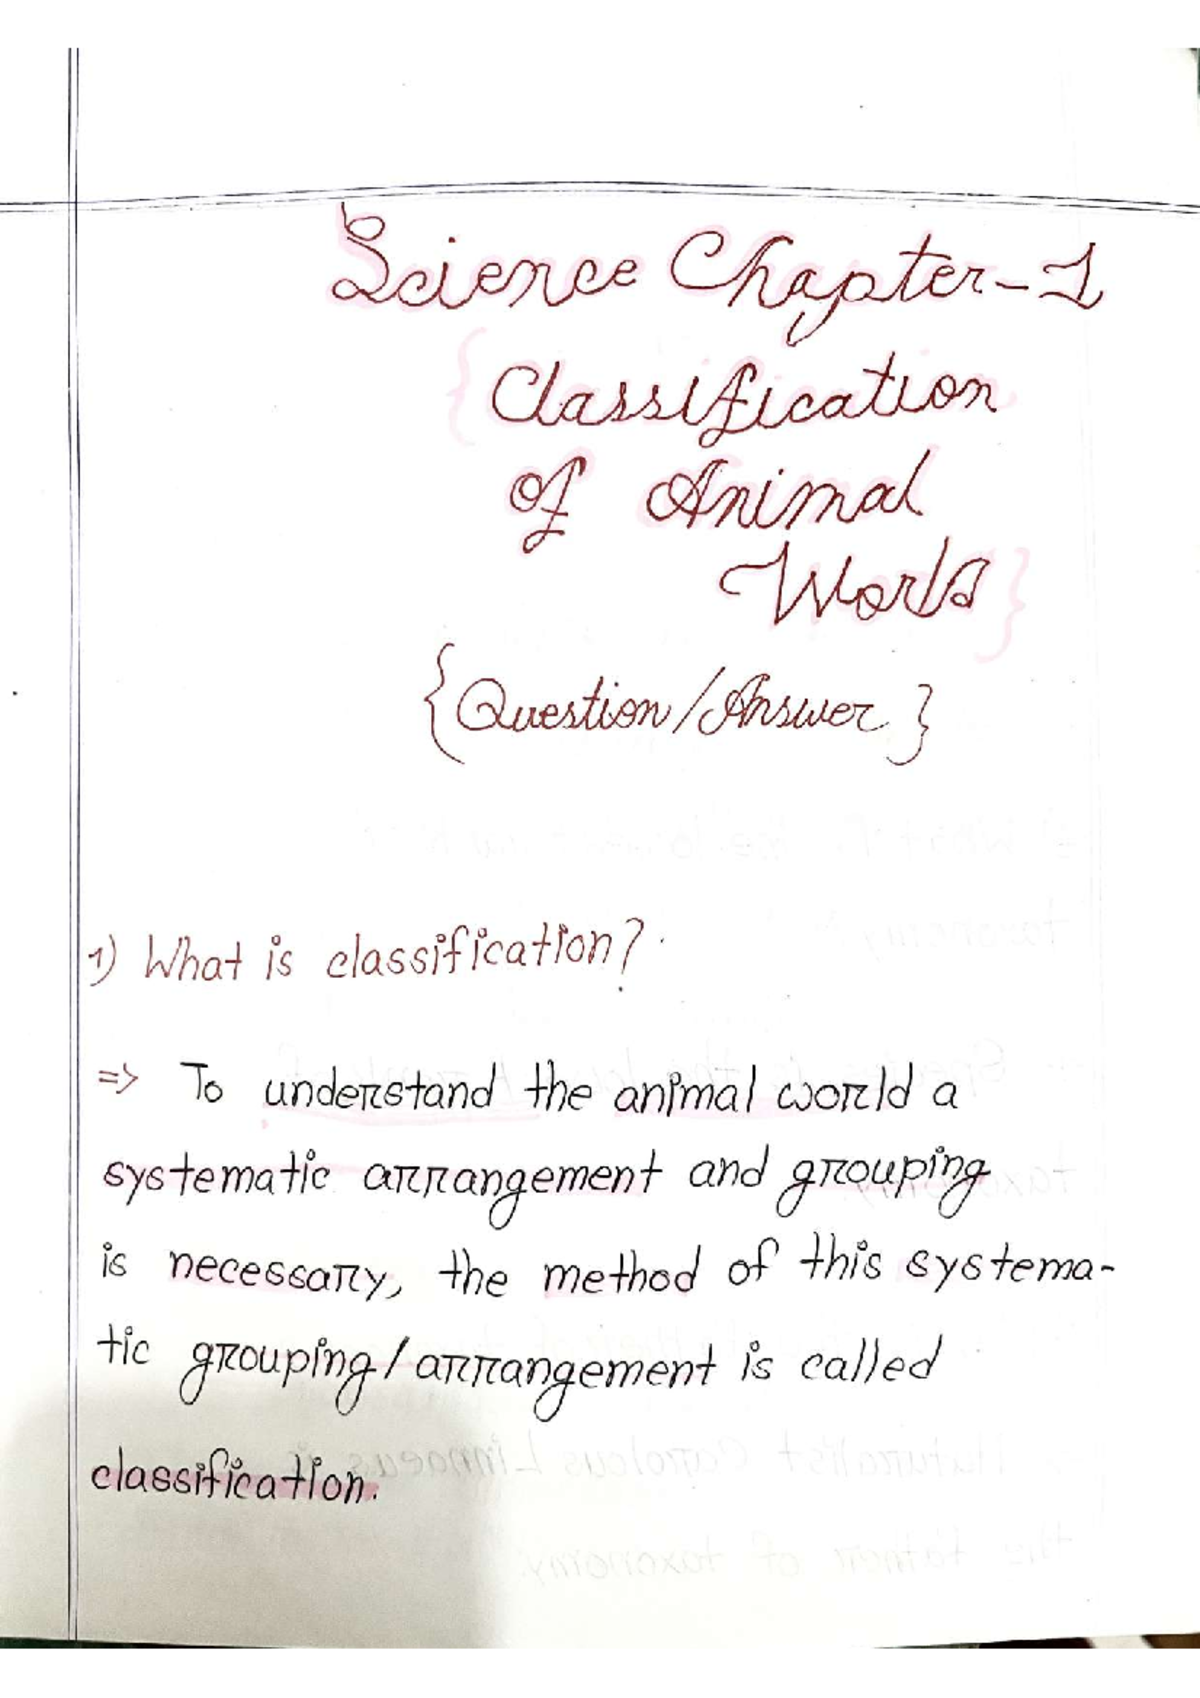 Science Chapter-1
{ Classification
of Animal
World }
{Question/Answer}
1) What is classification?
=> To understand the animal world a
systematic arrangement and grouping
is necessary, the method of this systema-
tic grouping/arrangement is called
classification.